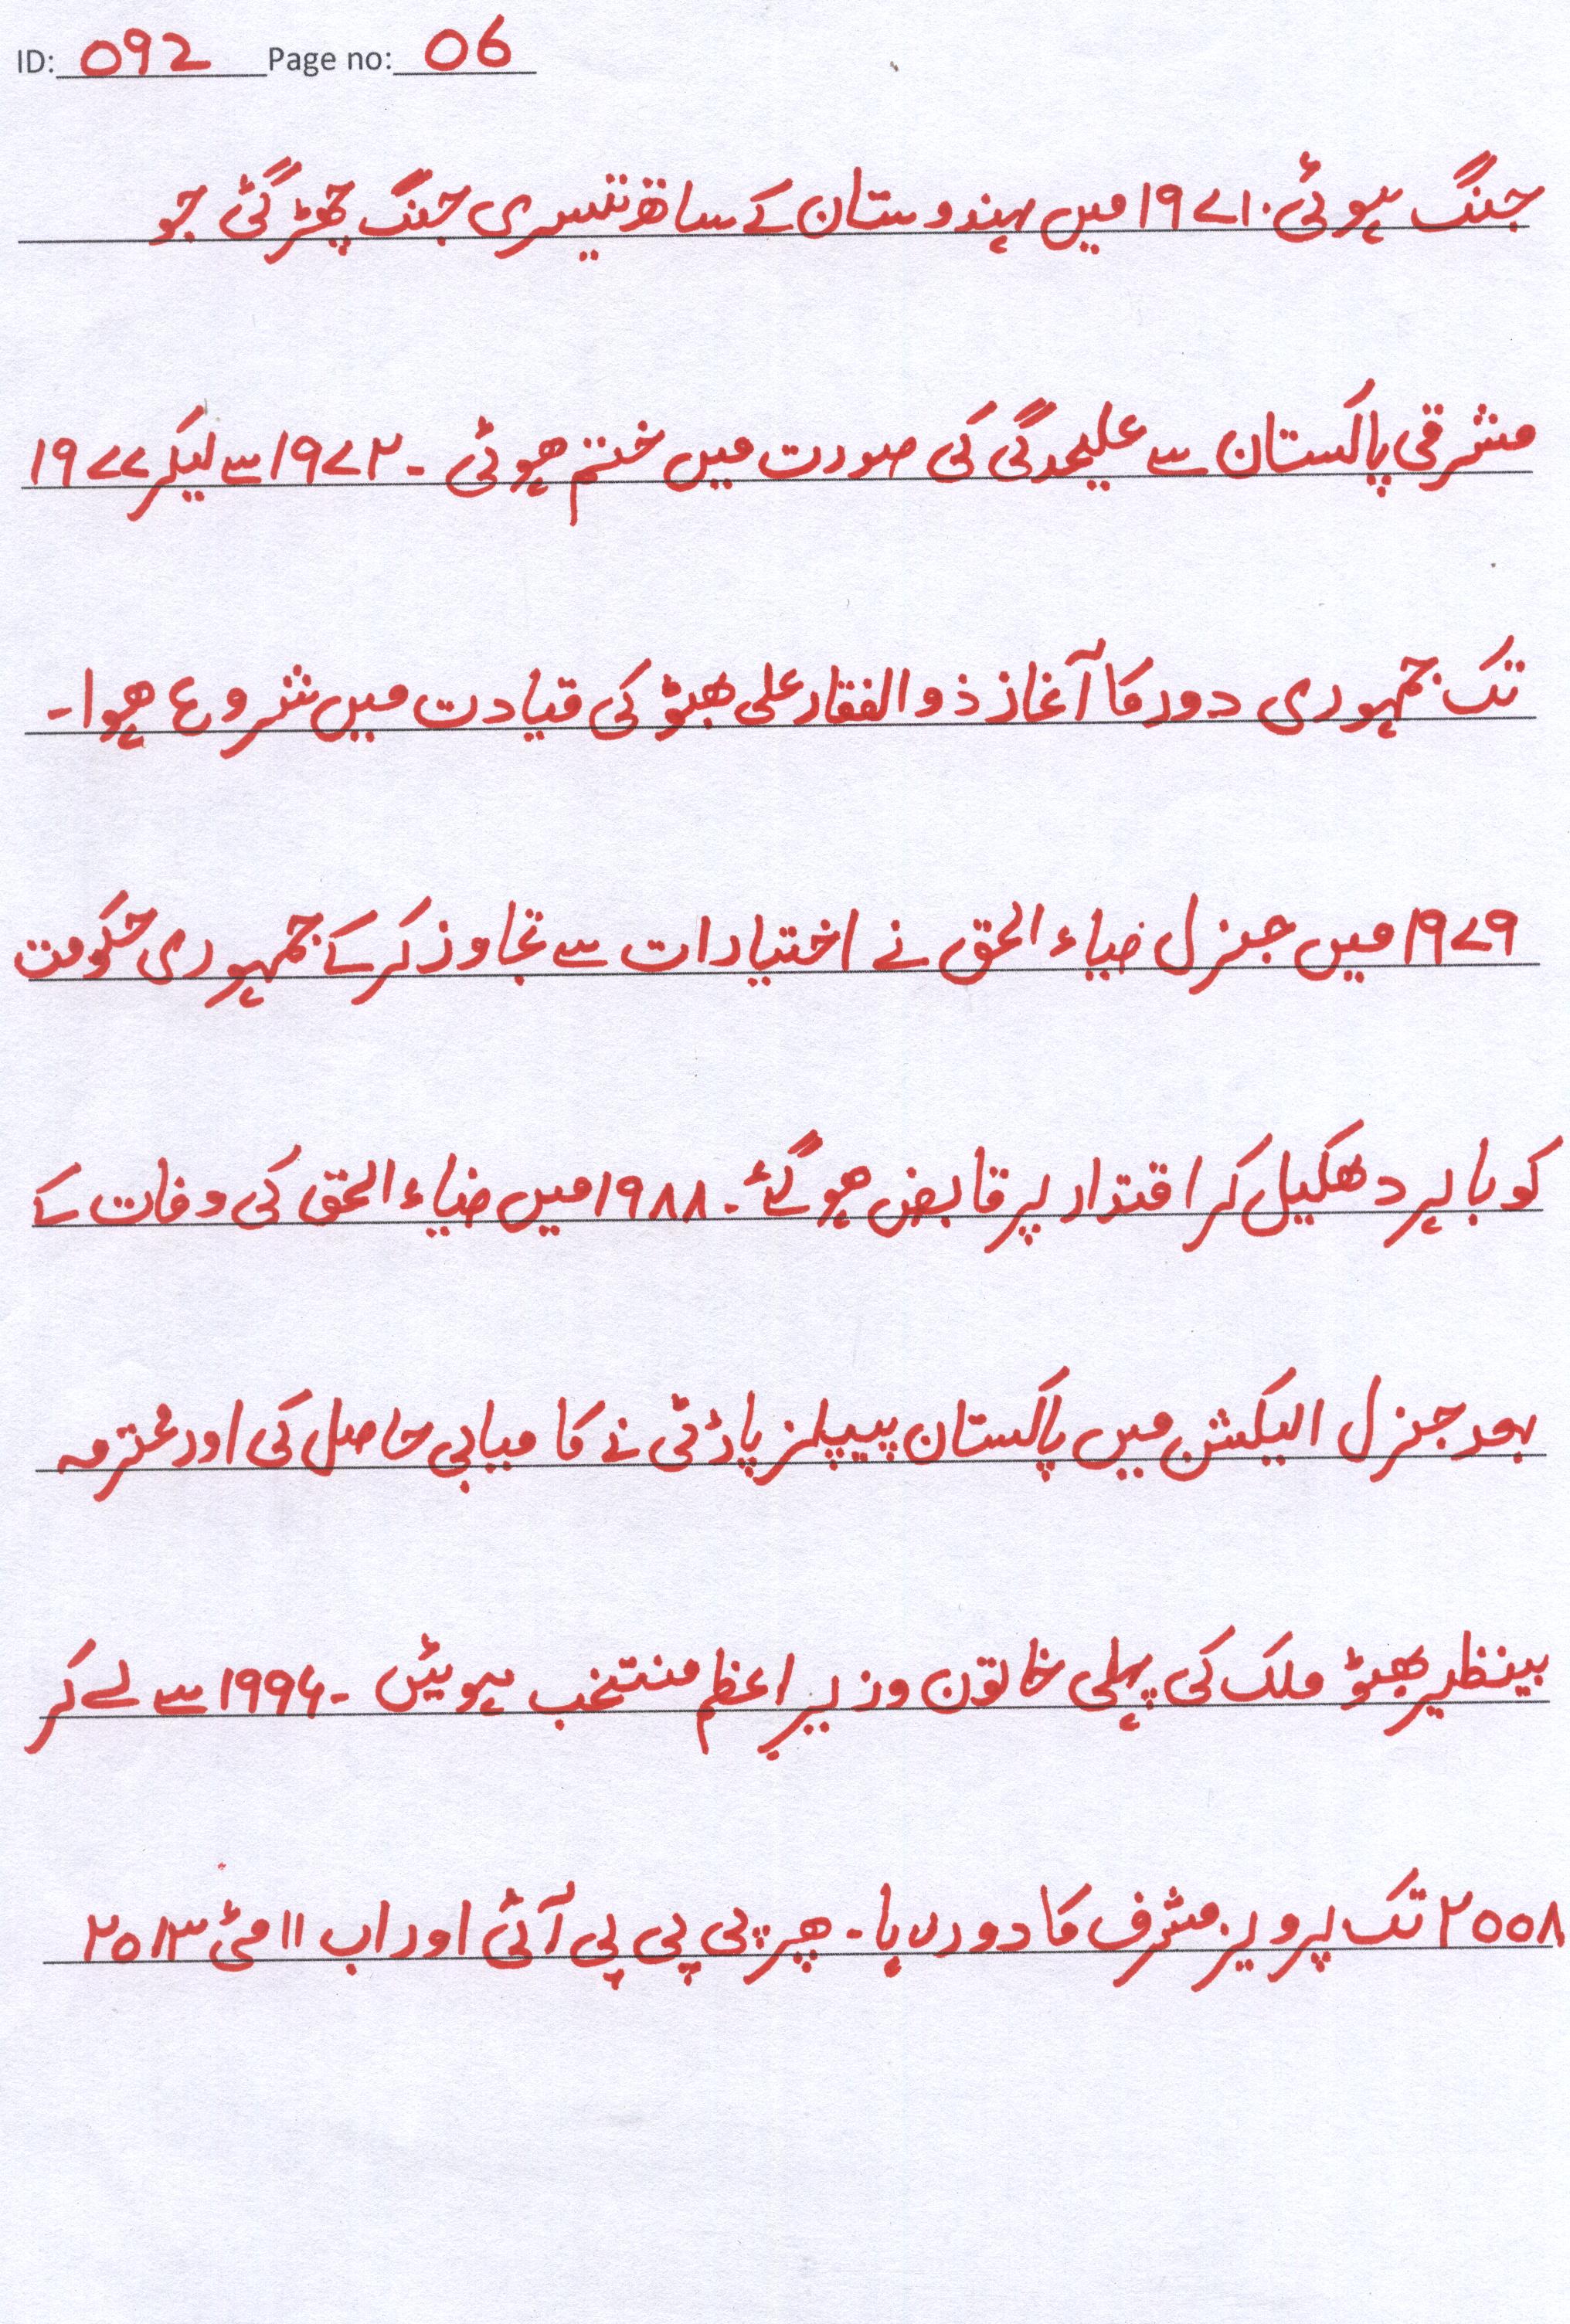 ID: 092 Page no: 06
جنگ ہوئی۔ ۱۹۷۱ میں ہندوستان کے ساتھ تیسری جنگ چھڑ گئی جو
مشرقی پاکستان سے علیحدگی کی صورت میں ختم ہوئی ۔ ۱۹۷۲ سے لیکر ۱۹۷۷
تک جمہوری دور کا آغاز ذوالفقار علی بھٹو کی قیادت میں شروع ہوا۔
۱۹۷۹ میں جنرل ضیاء الحق نے اختیارات سے تجاوز کر کے جمہوری حکومت
کو باہر دھکیل کر اقتدار پر قابض ہو گئے ۔ ۱۹۸۸ میں ضیاء الحق کی وفات کے
بعد جنرل الیکشن میں پاکستان پیپلز پارٹی نے کامیابی حاصل کی اور محترمہ
بینظیر بھٹو ملک کی پہلی خاتون وزیر اعظم منتخب ہوئیں ۔ ۱۹۹۶ سے لے کر
۲۰۰۸ تک پرویز مشرف کا دور رہا ۔ پھر پی پی پی آئی اور اب ۱۱ مئی ۲۰۱۳